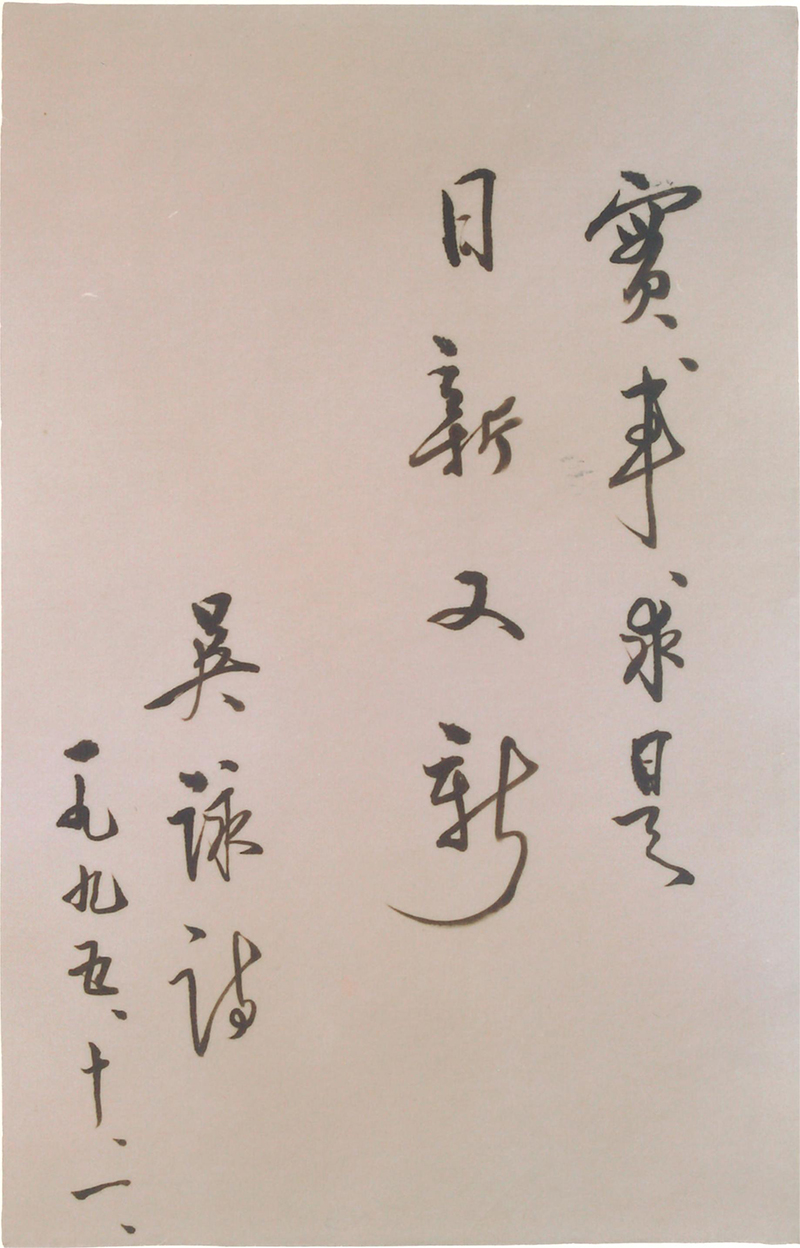 實事求是
日新又新
吳詠詩
一九九五、十、一、